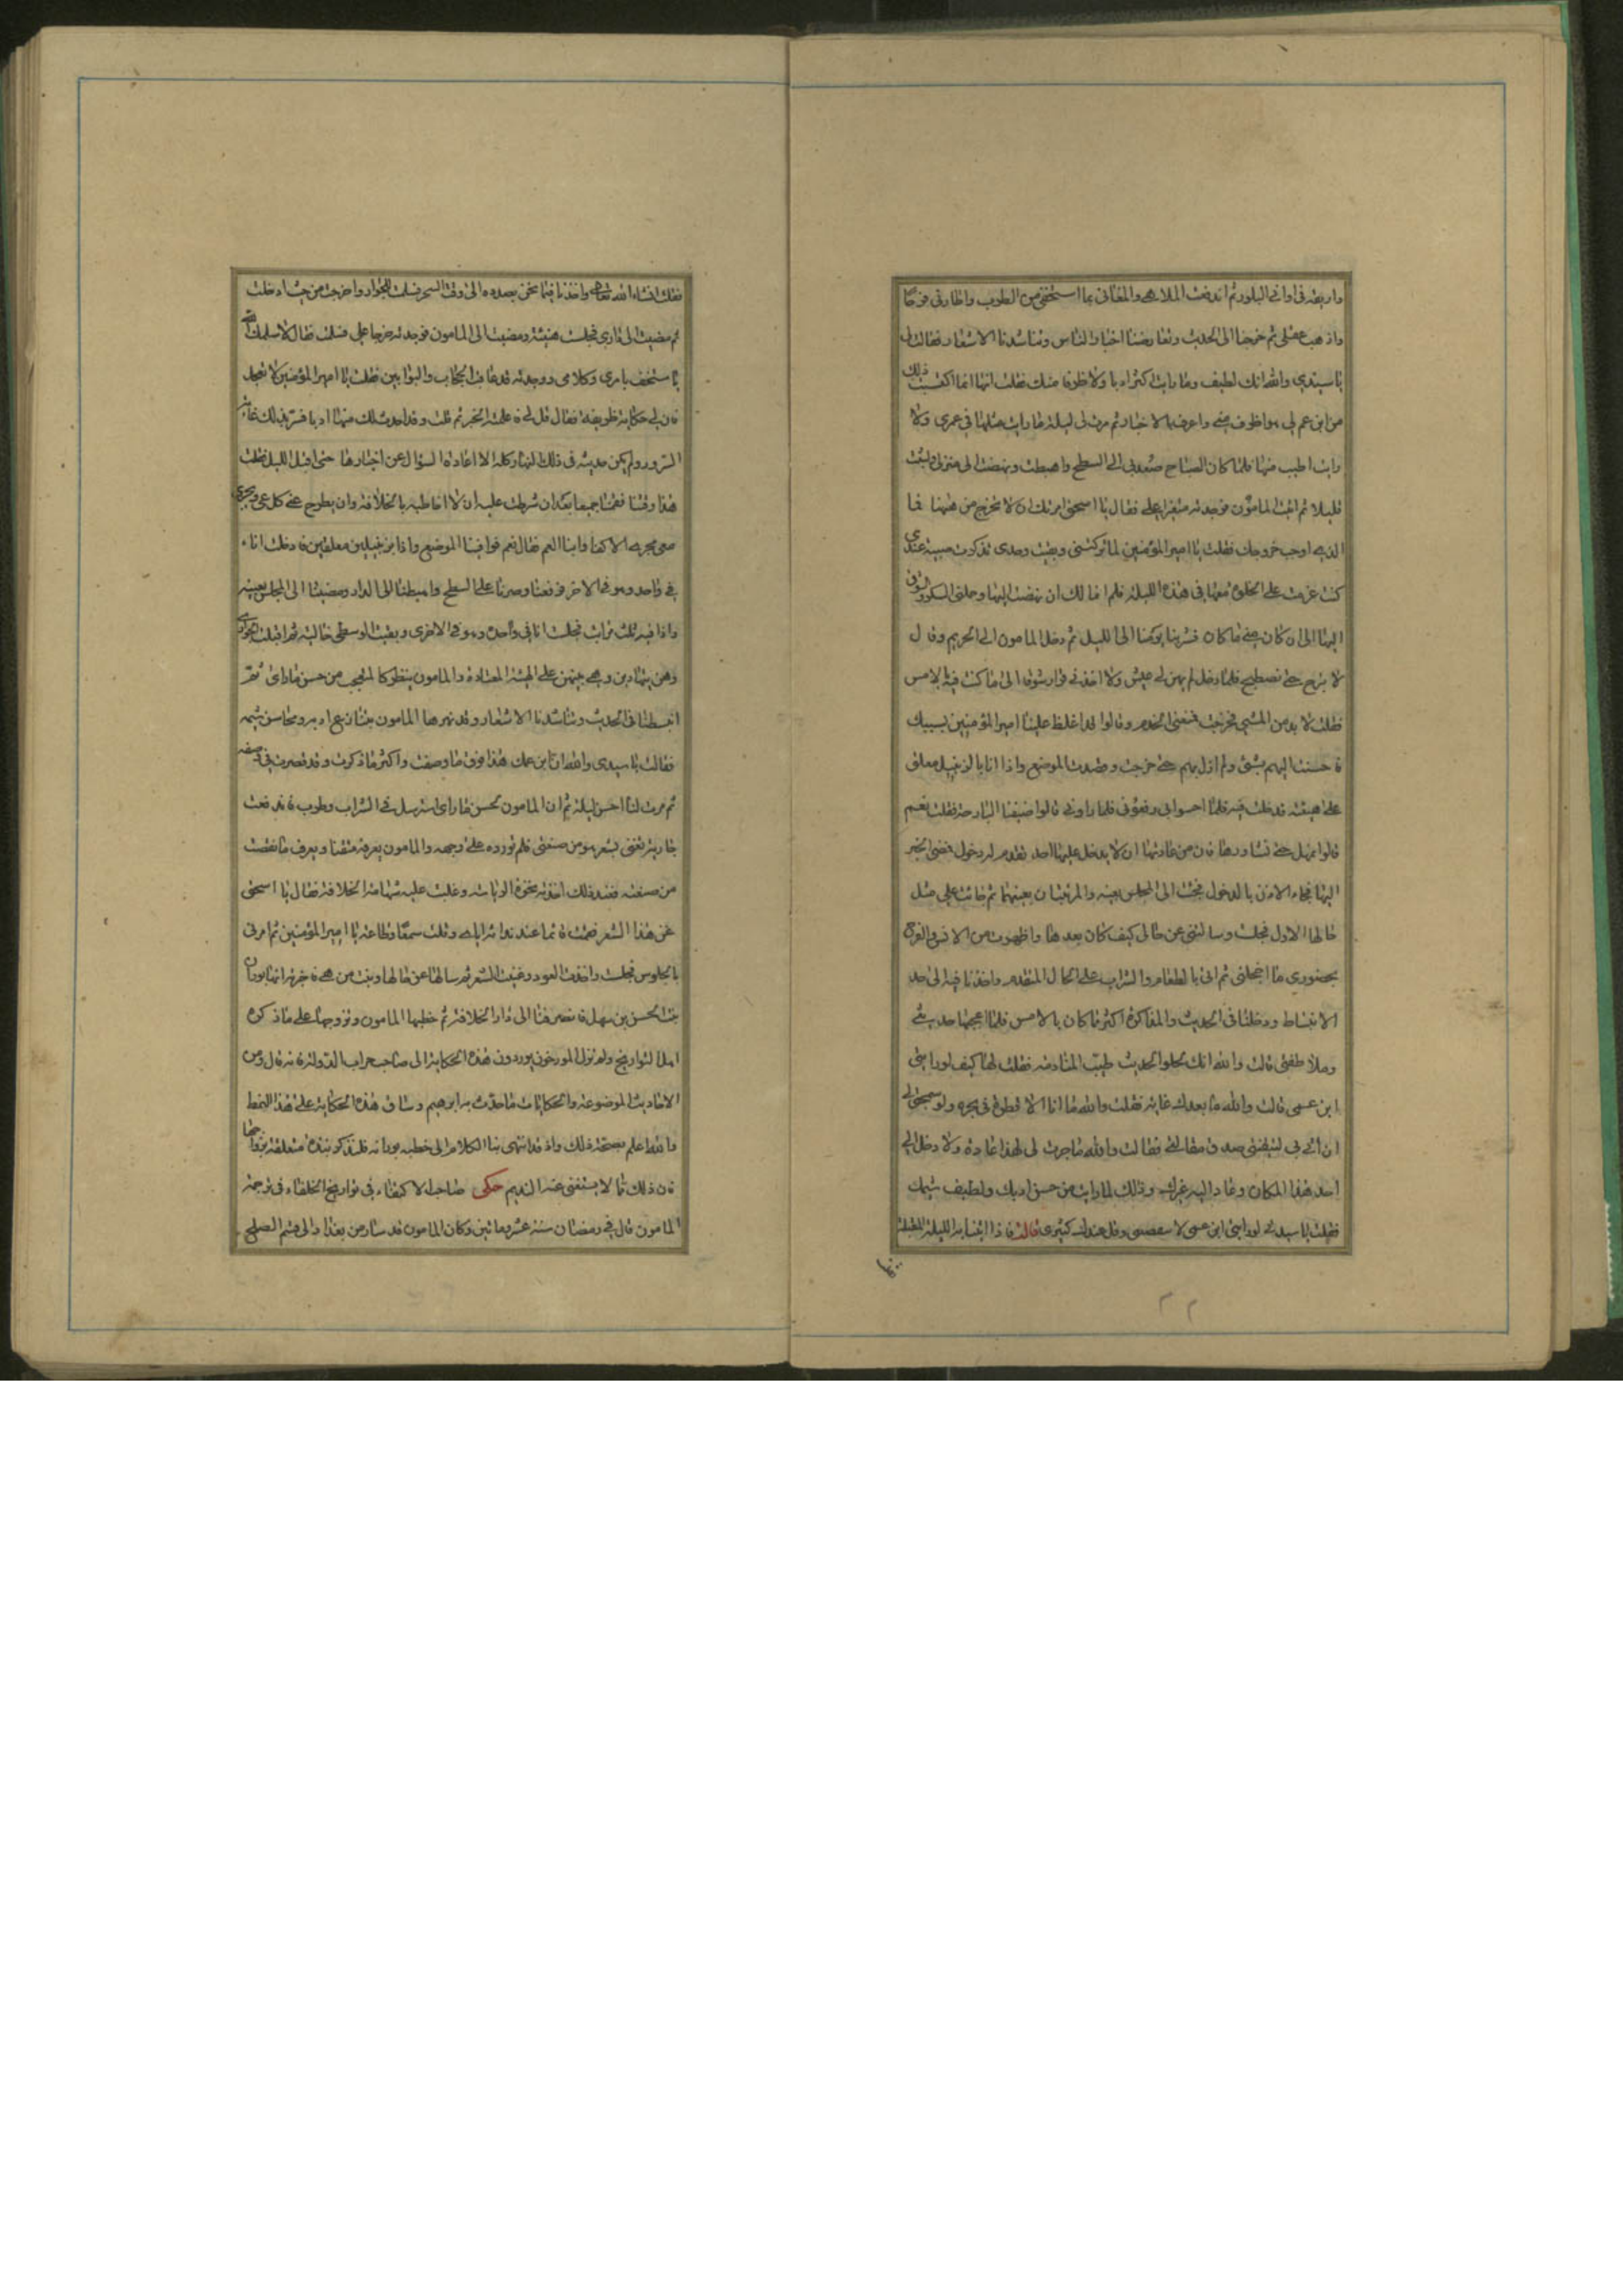 واربعة في اواني البلور ثم اندفعت الملاهي والمغاني بما استخفني من الطرب واطارني فرحا
واذهب عقلي ثم خرجنا الى الحديث وتعارضنا اخبار الناس وتناشدنا الاشعار فقالت لي
يا سيدي والله انك لطيف وما رايت اكثر ادبا ولا ظرفا منك فقلت انما اكتسبت ذلك
من ابن عم لي هو اظرف مني واعرف بالاخبار ثم مرت لي ليلة ما رايت مثلها في عمري ولا
رايت اطيب منها فلما كان الصباح صعدني الى السطح واهبطت ونهضت الى منزلي ولبثت
قليلا ثم اتيت المامون فوجدته متغيرا علي فقال يا اسحق امرتك ان لا تخرج من ههنا فما
الذي اوجب خروجك فقلت يا امير المؤمنين لما تركتني وبقيت وحدي تذكرت صبية عندي
كنت عزمت على الخلوة معها في هذه الليلة فلم اتمالك ان نهضت اليها وحملني السكر والشوق
اليها الى ان كان مني ما كان فشربنا يومنا الى الليل ثم دخل المامون الى الحريم وقال
لا تبرح حتى نصطبح فلما دخل لم يهن لي عيش ولا اخذني قرار شوقا الى ما كنت فيه بالامس
فقلت لا بد من المشي فخرجت فمنعني الخدم وقالوا قد اغلظ علينا امير المؤمنين بسببك
فاحسنت اليهم بشئ ولم ازل بهم حتى خرجت وقصدت الموضع واذا انا بالزنبيل معلق
على هيئته فدخلت فيه فلما احسوا بي رفعوني فلما راوني قالوا ضيفنا البارحة فقلت نعم
قالوا تمهل حتى نشاورها فان من عادتها ان لا يدخل عليها احد تقدم له دخول فمضى الخبر
اليها فجاء الاذن بالدخول فجئت الى المجلس بعينه والمرتبتان بعينهما ثم قامت علي مثل
حالها الاول فجلست وسالتني عن حالي كيف كان بعدها واظهرت من الانس والفرح
بحضوري ما اخجلني ثم اتي بالطعام والشراب على الحال المتقدم واخذنا فيه الى حد
الانبساط ودخلنا في الحديث والمذاكرة اكثر ما كان بالامس فلما اعجبها حديثي
وملاطفتي قالت والله انك لحلو الحديث طيب المنادمة فقلت لها كيف لو رايتي
ابن عمي قالت والله ما بعدك غاية فقلت والله ما انا الا قطرة في بحره ولو سمحتي لي
ان اتي بي لتيقنتي صدق مقالتي فقالت والله ما جرت لي بهذا عادة ولا دخل الي
احد هذا المكان وعاد اليه غيرك وذلك لما رايت من حسن ادبك ولطيف شيمك
فقلت يا سيدتي لو رايتي ابن عمي لا وقل عندك قالت فاذا اتيتنا به الليلة المقبلة
فقلت
فقلت ان شاء الله تعالى واخذنا فيما نحن بصدده الى وقت السحر فسلت الجوار واخرجت من حيث ادخلت
ثم مضيت الى داري فجلست هنيئة ومضيت الى المامون فوجدته حرجا علي فسلمت فقال لا سلمك الله
يا مستخف بامري وكلامي ووجدته قد عاقب الحجاب والبوابين فقلت يا امير المؤمنين لا تعجل
فان لي حكاية ظريفة فقال قل لي فاعلمته الخبر ثم قلت وقد اخذت لك منها ادبا فسر بذلك غاية
السرور ولم يكن حديثه في ذلك النهار كله الا اعادة السؤال عن اخبارها حتى اقبل الليل فقلت
هذا وقتنا فقمنا جميعا بعد ان شرطت عليه ان لا اخاطبه بالخلافة وان يطرح عني كلما ويجري
معي مجرى الاكفاء وابنا العم فقال نعم فوافينا الموضع واذا بزنبيلين معلقين فدخلت انا
في واحد وهو في الاخر فرفعنا وصرنا على السطح واهبطنا الى الدار ومضينا الى المجلس بعينه
واذا فيه ثلث مراتب فجلست انا في واحدة وهو في الاخرى وبقيت الوسطى خالية ثم اقبلت الجواري
وهن يتهادين وهي بينهن على الهيئة المعتادة والمامون ينظر كالمتعجب من حسن ما راى ثم
انبسطنا في الحديث وتناشدنا الاشعار وقد بهرها المامون بلسانه ادبه ومحاسن شيمه
فقالت يا سيدي والله ان ابن عمك هذا فوق ما وصفت واكثر ما ذكرت وقد قصرت في وصفه
ثم مرت لنا احسن ليلة ثم ان المامون لحسن ما راى استرسل في الشراب وطرب فاندفعت
جارية تغني بشعر هو من صنعتي فلم تورده على وجهه والمامون يعرفه متقنا ويعرف ما نقصت
من صنعته فعند ذلك اخذته نخوة الرياسة وغلبت عليه شهامة الخلافة فقال يا اسحق
غن هذا الشعر فقمت قائما عند ندائه اياي وقلت سمعا وطاعة يا امير المؤمنين ثم امرني
بالجلوس فجلست واخذت العود وغنيت الشعر ثم سالها عن حالها وبنت من هي فاخبرته انها بوران
بنت الحسن بن سهل فانصرفنا الى دار الخلافة ثم خطبها المامون وتزوجها على ما ذكره
اهل التواريخ ولم تزل المورخون يوردون هذه الحكاية الى صاحب الدولة فانه قال ومن
الاحاديث الموضوعة والحكايات ما حدث به ابرهيم وساق هذه الحكاية على هذا النمط
والله اعلم بصحة ذلك واذ قد انتهى بنا الكلام الى خطبة بورانه فلنذكر نبذة متعلقة بزواجها
فان ذلك مما لا يستغني عنه النديم حكى صاحب الاكتفاء في تواريخ الخلفاء في ترجمة
المامون قال في رمضان سنة عشر ومائتين وكان المامون قد سار من بغداد الى فم الصلح